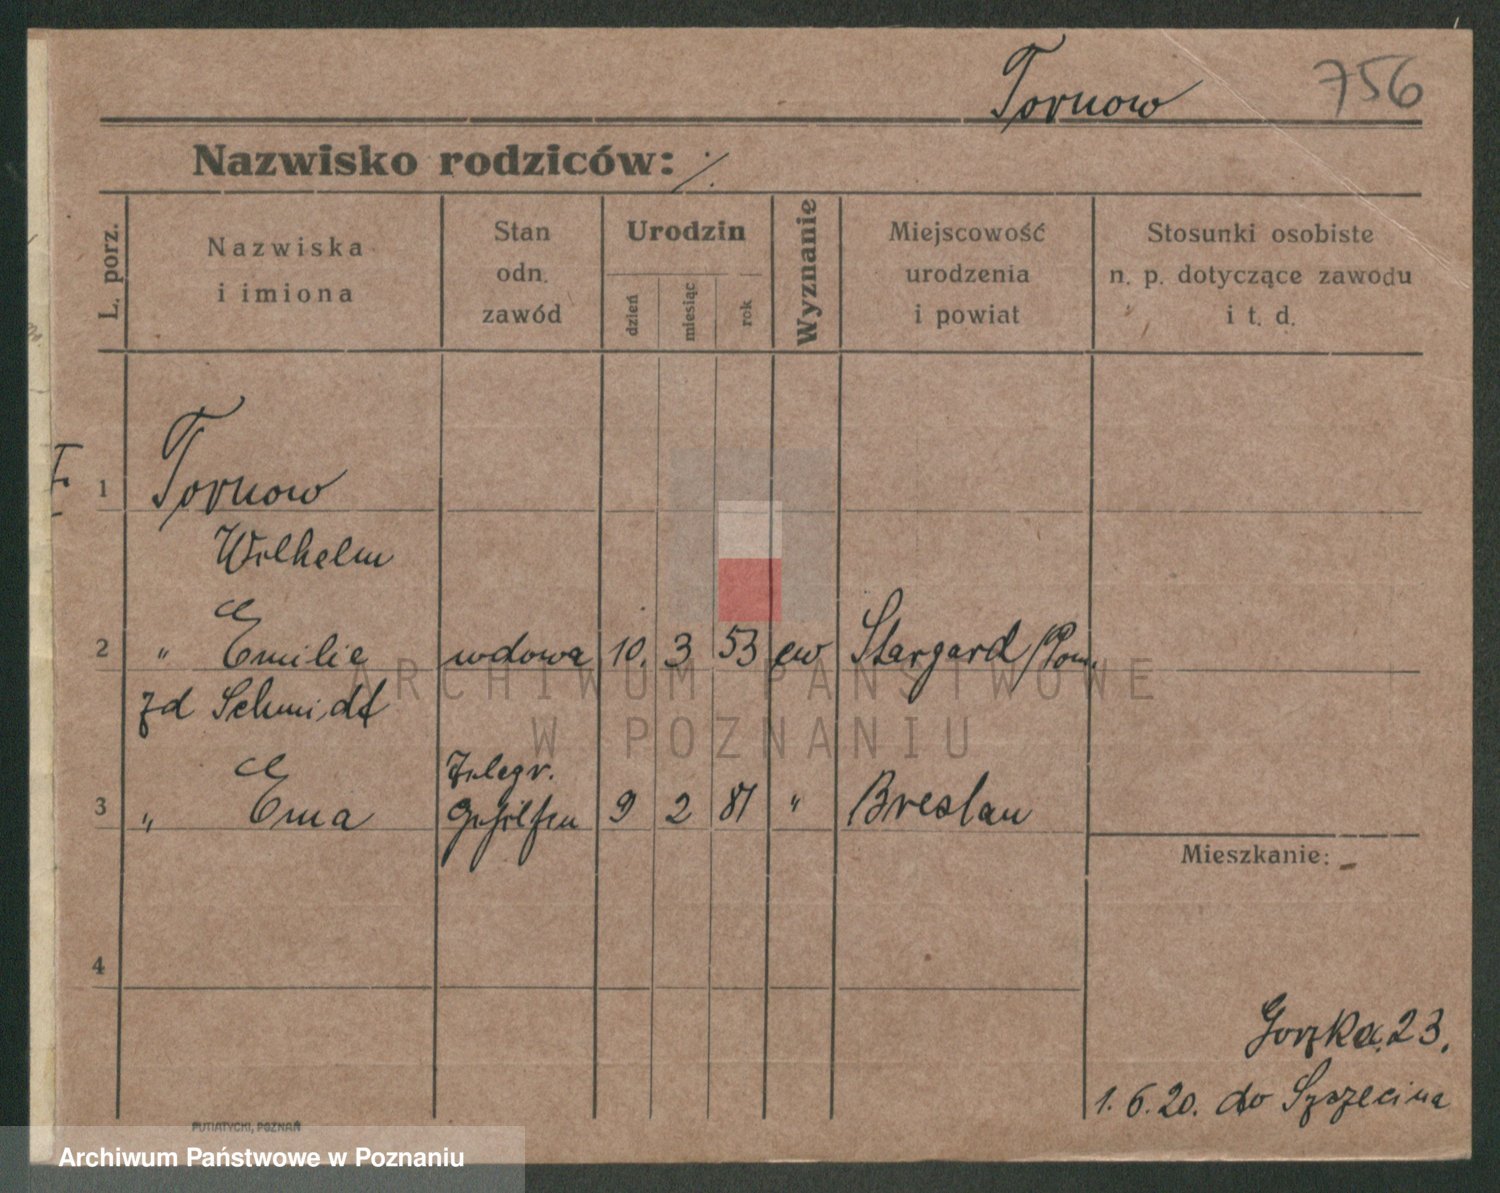 Tornow
756
Nazwisko rodziców: ·/.
L. porz.
Nazwiska
i imiona
Stan
odn.
zawód
Urodzin
dzień
miesiąc
rok
Wyznanie
Miejscowość
urodzenia
i powiat
Stosunki osobiste
n. p. dotyczące zawodu
i t. d.
1
Tornow
Wilhelm
2 " Emilie wdowa 10. 3 53 ew Stargard /Pom.
zd Schmidt
Telegr.
3 " Erna Gehilfin 9 2 81 " Breslau
Mieszkanie:
4
Gorzka 23.
1.6.20. do Szczecina
PUTIATYCKI, POZNAŃ
ARCHIWUM PAŃSTWOWE
W POZNANIU
Archiwum Państwowe w Poznaniu